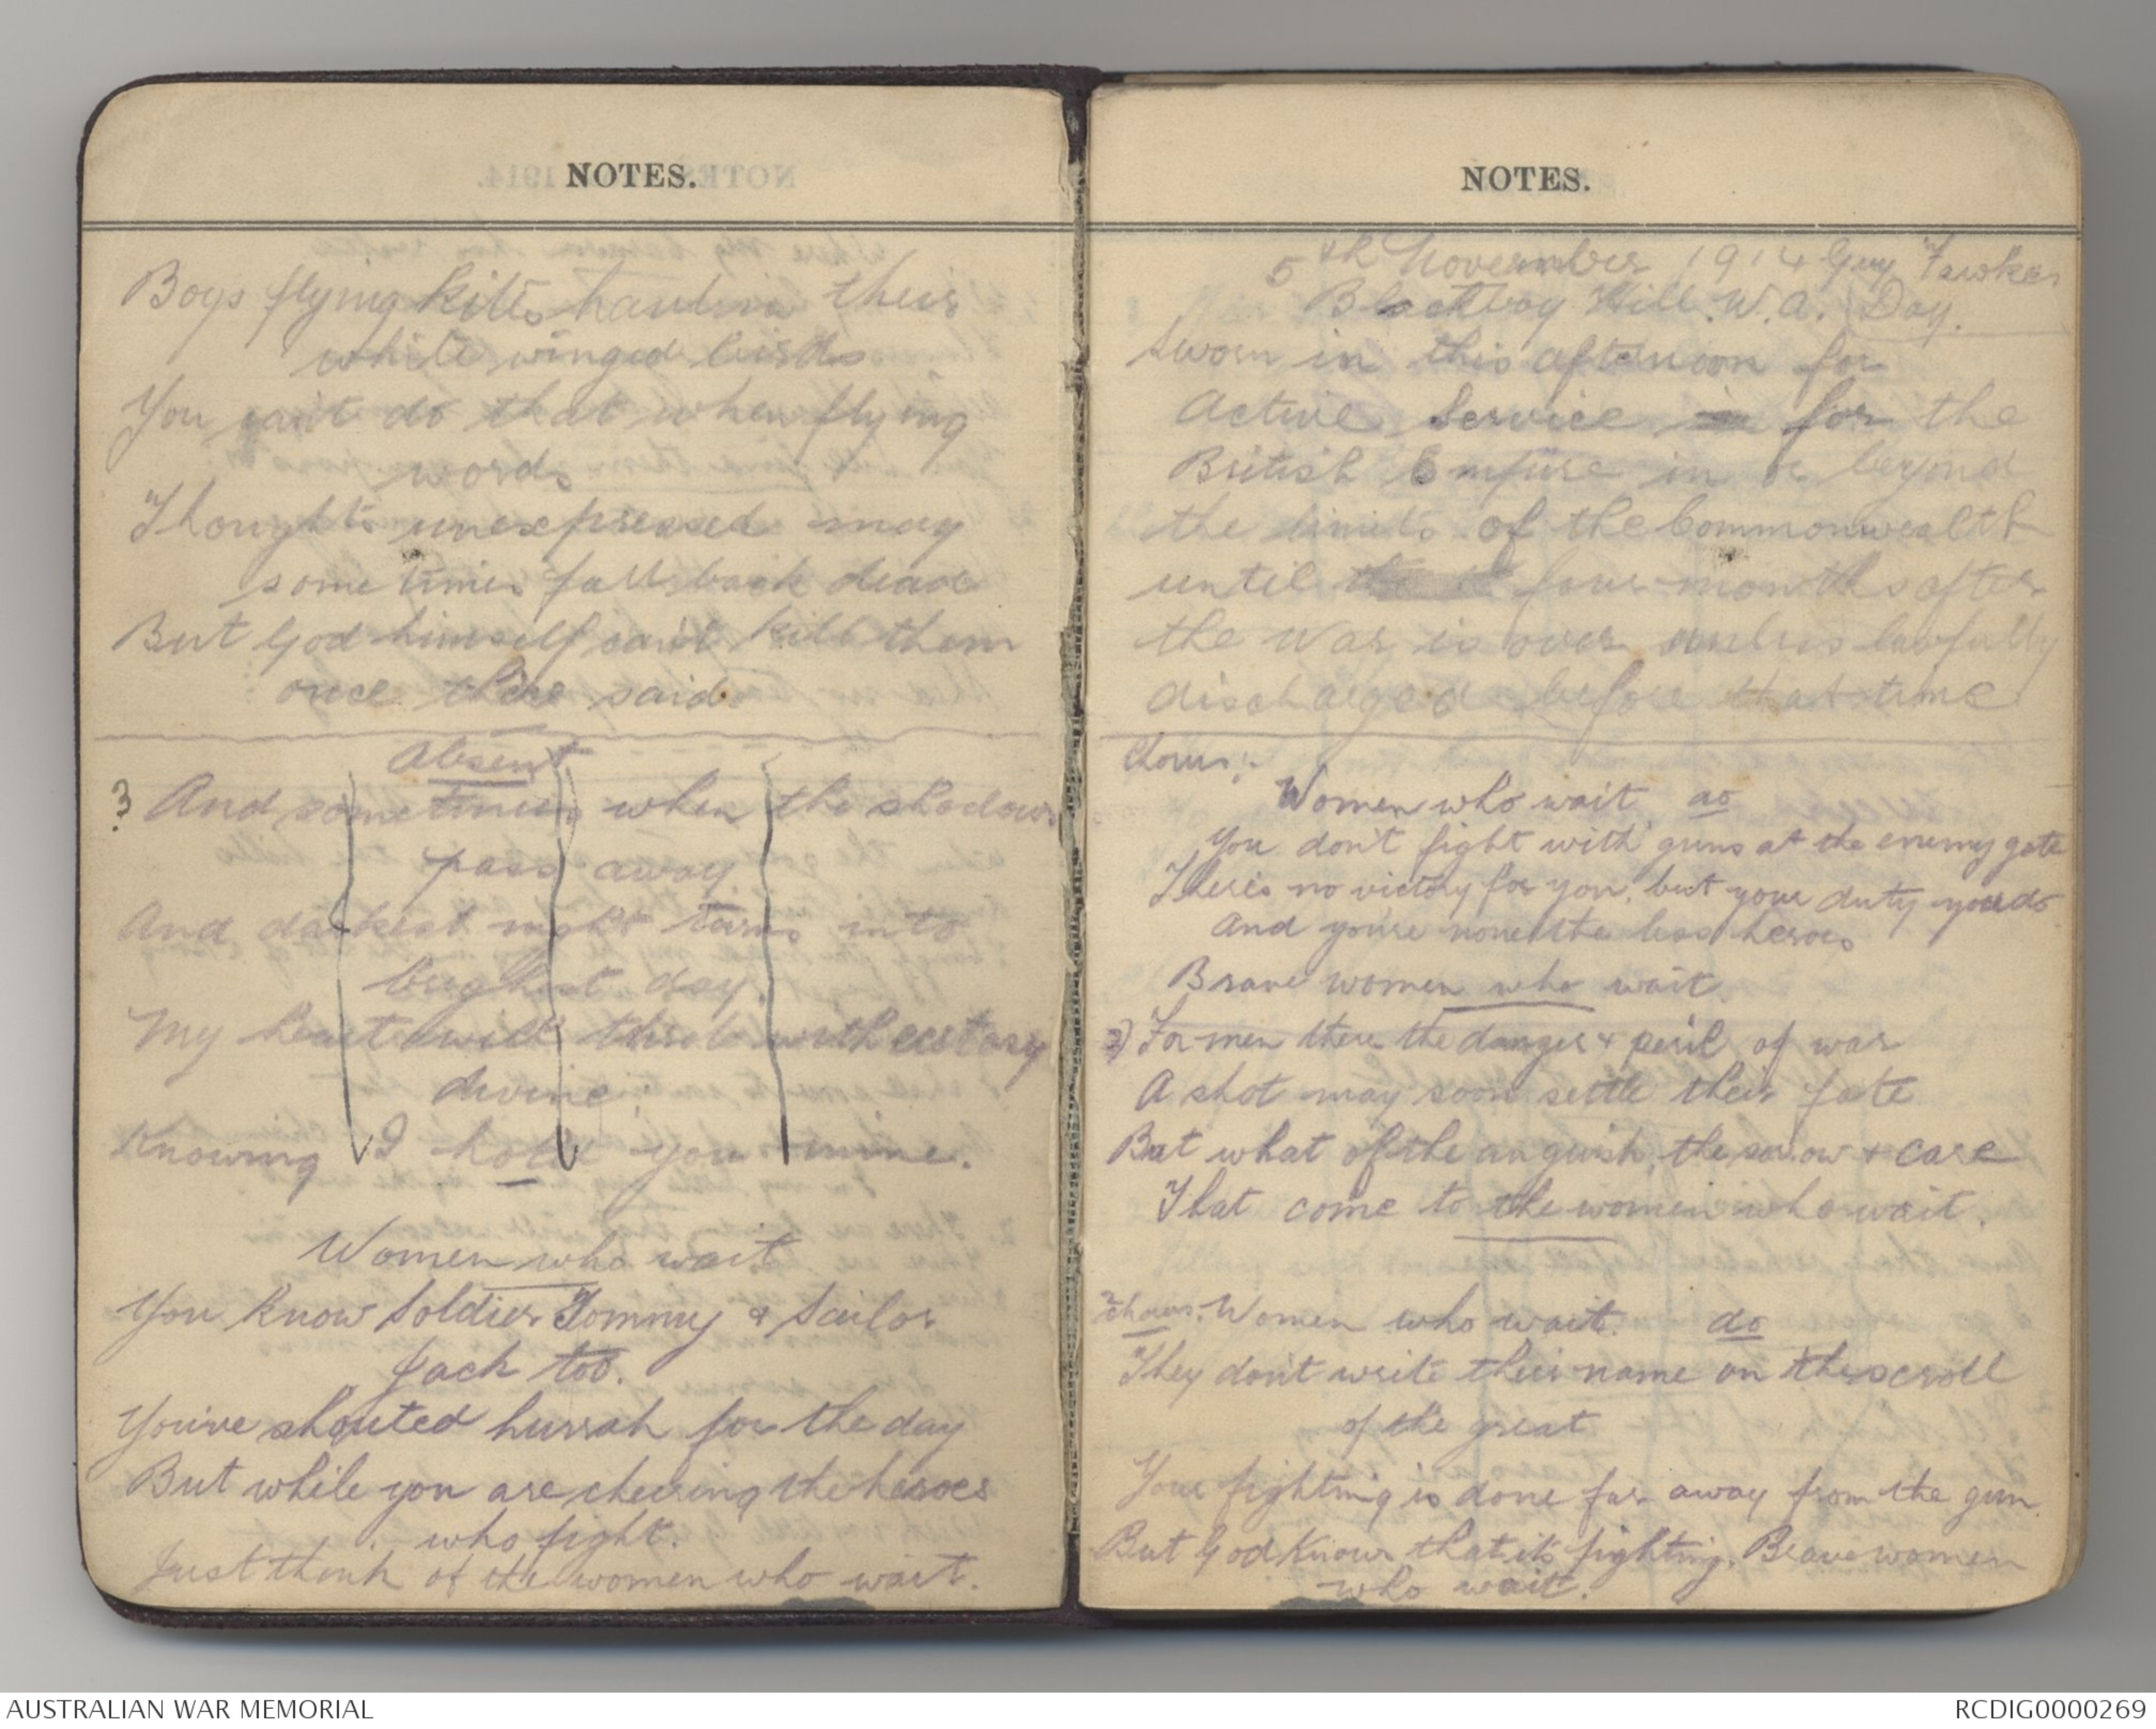 NOTES.
Boys flying kites haul in their
white winged birds
You can't do that when flying
words
Thoughts unexpressed may
sometimes fall back dead
But God himself can't kill them
once there said.
Absent
3 And sometimes when the shadows
pass away
And darkest night turns into
brightest day.
My heart will thrill with ecstasy
divine.
Knowing I hold you mine.
Women who wait
You know Soldier Tommy & Sailor
Jack too.
You've shouted hurrah for the day
But while you are cheering the heroes
who fight.
Just think of the women who wait.
NOTES.
5th November 1914 Guy Fawkes
Blackboy Hill. W.A. Day.
Sworn in this afternoon for
Active Service for the
British Empire in or beyond
the limits of the Commonwealth
until four months after
the War is over unless lawfully
discharged before that time
Chorus:-
Women who wait do
You don't fight with guns at the enemy gate
There's no victory for you, but your duty you do
And you're none the less heroes
Brave women who wait.
2) For men there the danger & peril of war
A shot may soon settle their fate
But what of the anguish, the sorrow & care
That come to the women who wait.
2 chorus. Women who wait. do
They don't write their name on the scroll
of the great
Your fighting is done far away from the gun
But God knows that it's fighting. Brave women
who wait.
AUSTRALIAN WAR MEMORIAL
RCDIG0000269